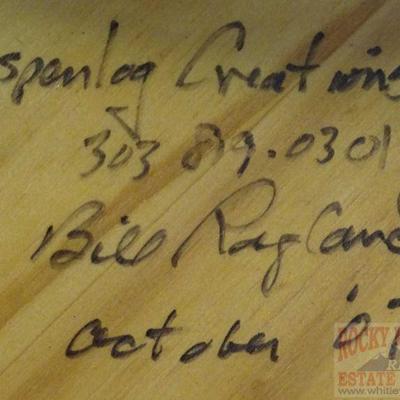 spenlog Creations
303 819.0301
Bill Ragland
October '07
ROCKY
ESTATE
www.whitley